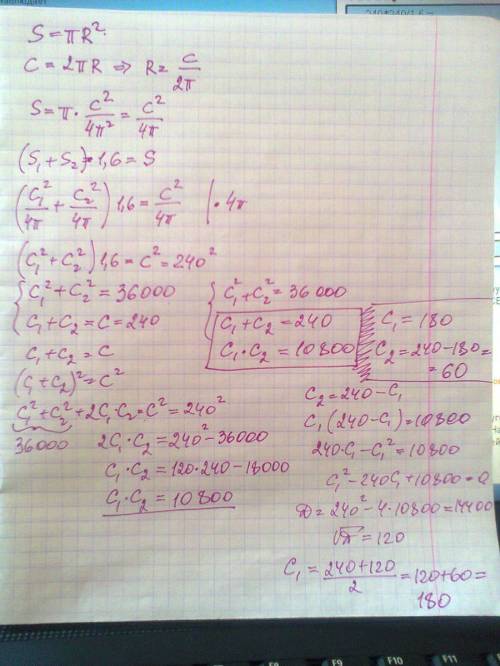 S = πR²
C = 2πR ⇒ R = C/2π
S = π · C²/4π² = C²/4π
(S₁ + S₂) · 1,6 = S
(C₁²/4π + C₂²/4π) 1,6 = C²/4π | · 4π
(C₁² + C₂²) 1,6 = C² = 240²
{ C₁² + C₂² = 36000
C₁ + C₂ = C = 240
C₁ + C₂ = C
(C₁ + C₂)² = C²
C₁² + C₂² + 2C₁C₂ = C² = 240²
36000
2C₁ · C₂ = 240² - 36000
C₁ · C₂ = 120 · 240 - 18000
C₁ · C₂ = 10800
{ C₁² + C₂² = 36000
C₁ + C₂ = 240
C₁ · C₂ = 10800
C₁ = 180
C₂ = 240 - 180 =
= 60
C₂ = 240 - C₁
C₁ (240 - C₁) = 10800
240 · C₁ - C₁² = 10800
C₁² - 240C₁ + 10800 = 0
D = 240² - 4 · 10800 = 14400
√D = 120
C₁ = (240 + 120)/2 = 120 + 60 =
180
F8
F9
F10
F11